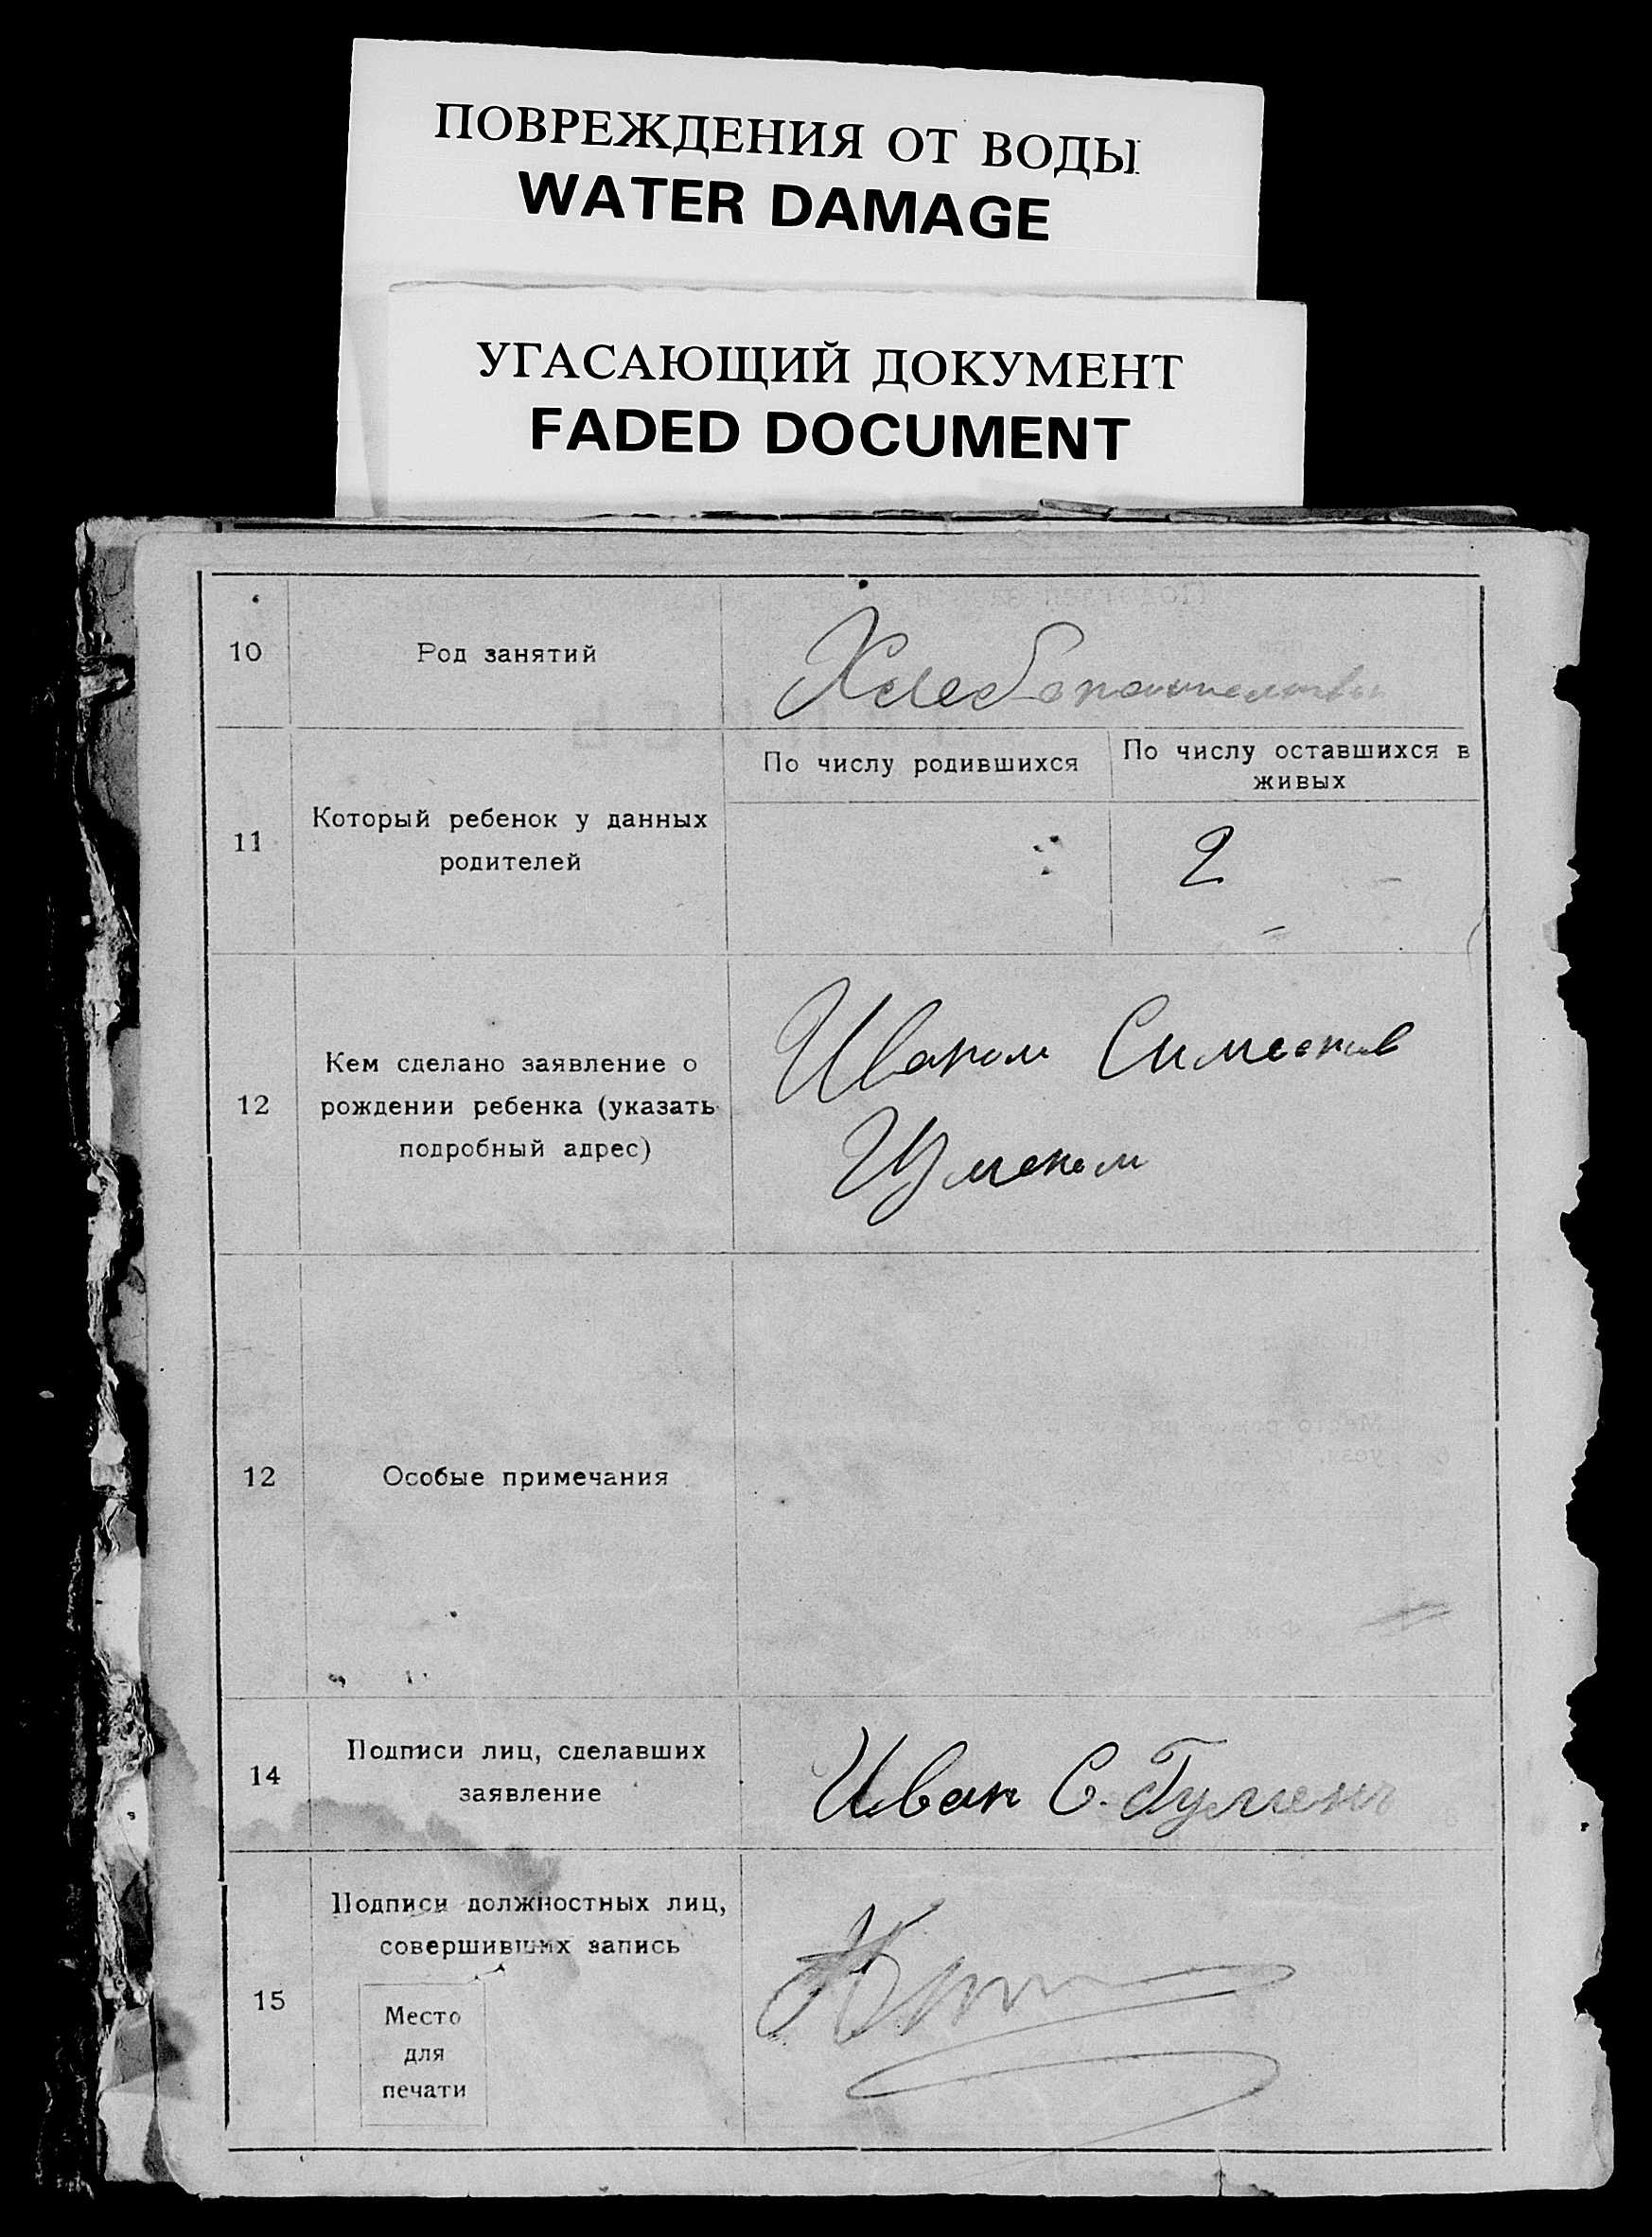 ПОВРЕЖДЕНИЯ ОТ ВОДЫ
WATER DAMAGE
УГАСАЮЩИЙ ДОКУМЕНТ
FADED DOCUMENT
10 Род занятий
11 Который ребенок у данных
родителей
По числу родившихся
По числу оставшихся в
живых
2
12 Кем сделано заявление о
рождении ребенка (указать
подробный адрес)
Иваном
12 Особые примечания
14 Подписи лиц, сделавших
заявление
Иван С.
15 Подписи должностных лиц,
совершивших запись
Место
для
печати